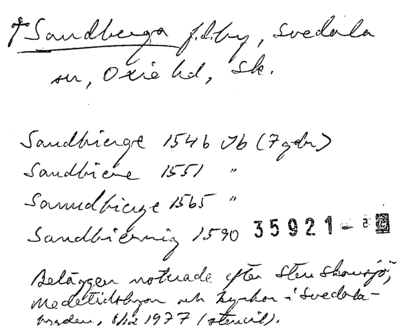 † Sandberga f.d. by, Svedala
sn, Oxie hd, Sk.
Sandbierge 1546 Jb (7 gdr)
Sandbiere 1551 "
Sanndbierge 1565 "
Sandbierrig 1590 35921-
Beläggen noterade efter Sten Skansjö,
Medeltidsbyar och kyrkor i Svedala-
bygden, 1977 (stencil).